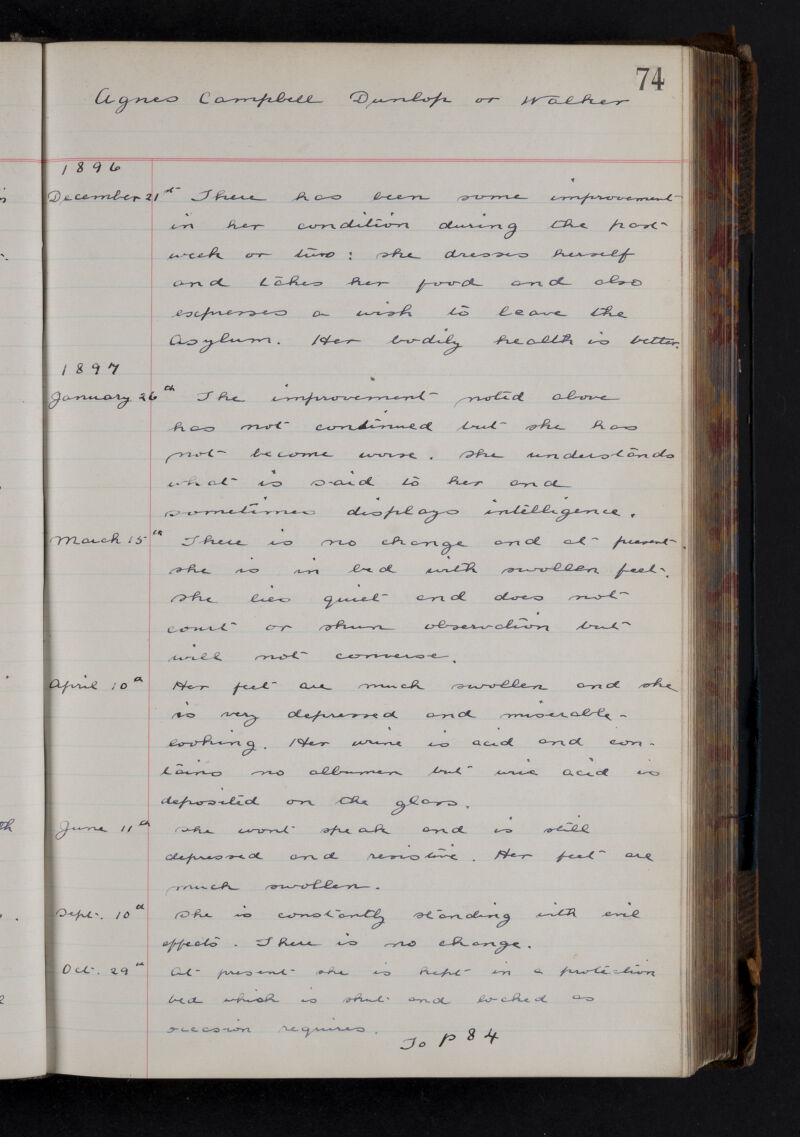 74
Agnes Campbell Dunlop or Walker
1896
December 21st There has been some improvement
in her condition during the past
week or two: she dresses herself
and takes her food and also
expresses a wish to leave the
Asylum. Her bodily health is better.
1897
January 26th The improvement noted above
has not continued but she has
not become worse. She understands
what is said to her and
sometimes displays intelligence.
March 15th There is no change and at present
she is in bed with swollen feet.
She lies quiet and does not
court or shun observation but
will not converse.
April 10th Her feet are much swollen and she
is very depressed and miserable-
looking. Her urine is acid and con-
tains no albumen but uric acid is
deposited on the glass.
June 11th She wont speak and is still
depressed and resistive. Her feet are
much swollen.
Sept. 10th She is constantly standing with evil
effects. There is no change.
Oct. 29th At present she is kept in a protection
bed which is shut and locked as
occasion requires.
To P 84